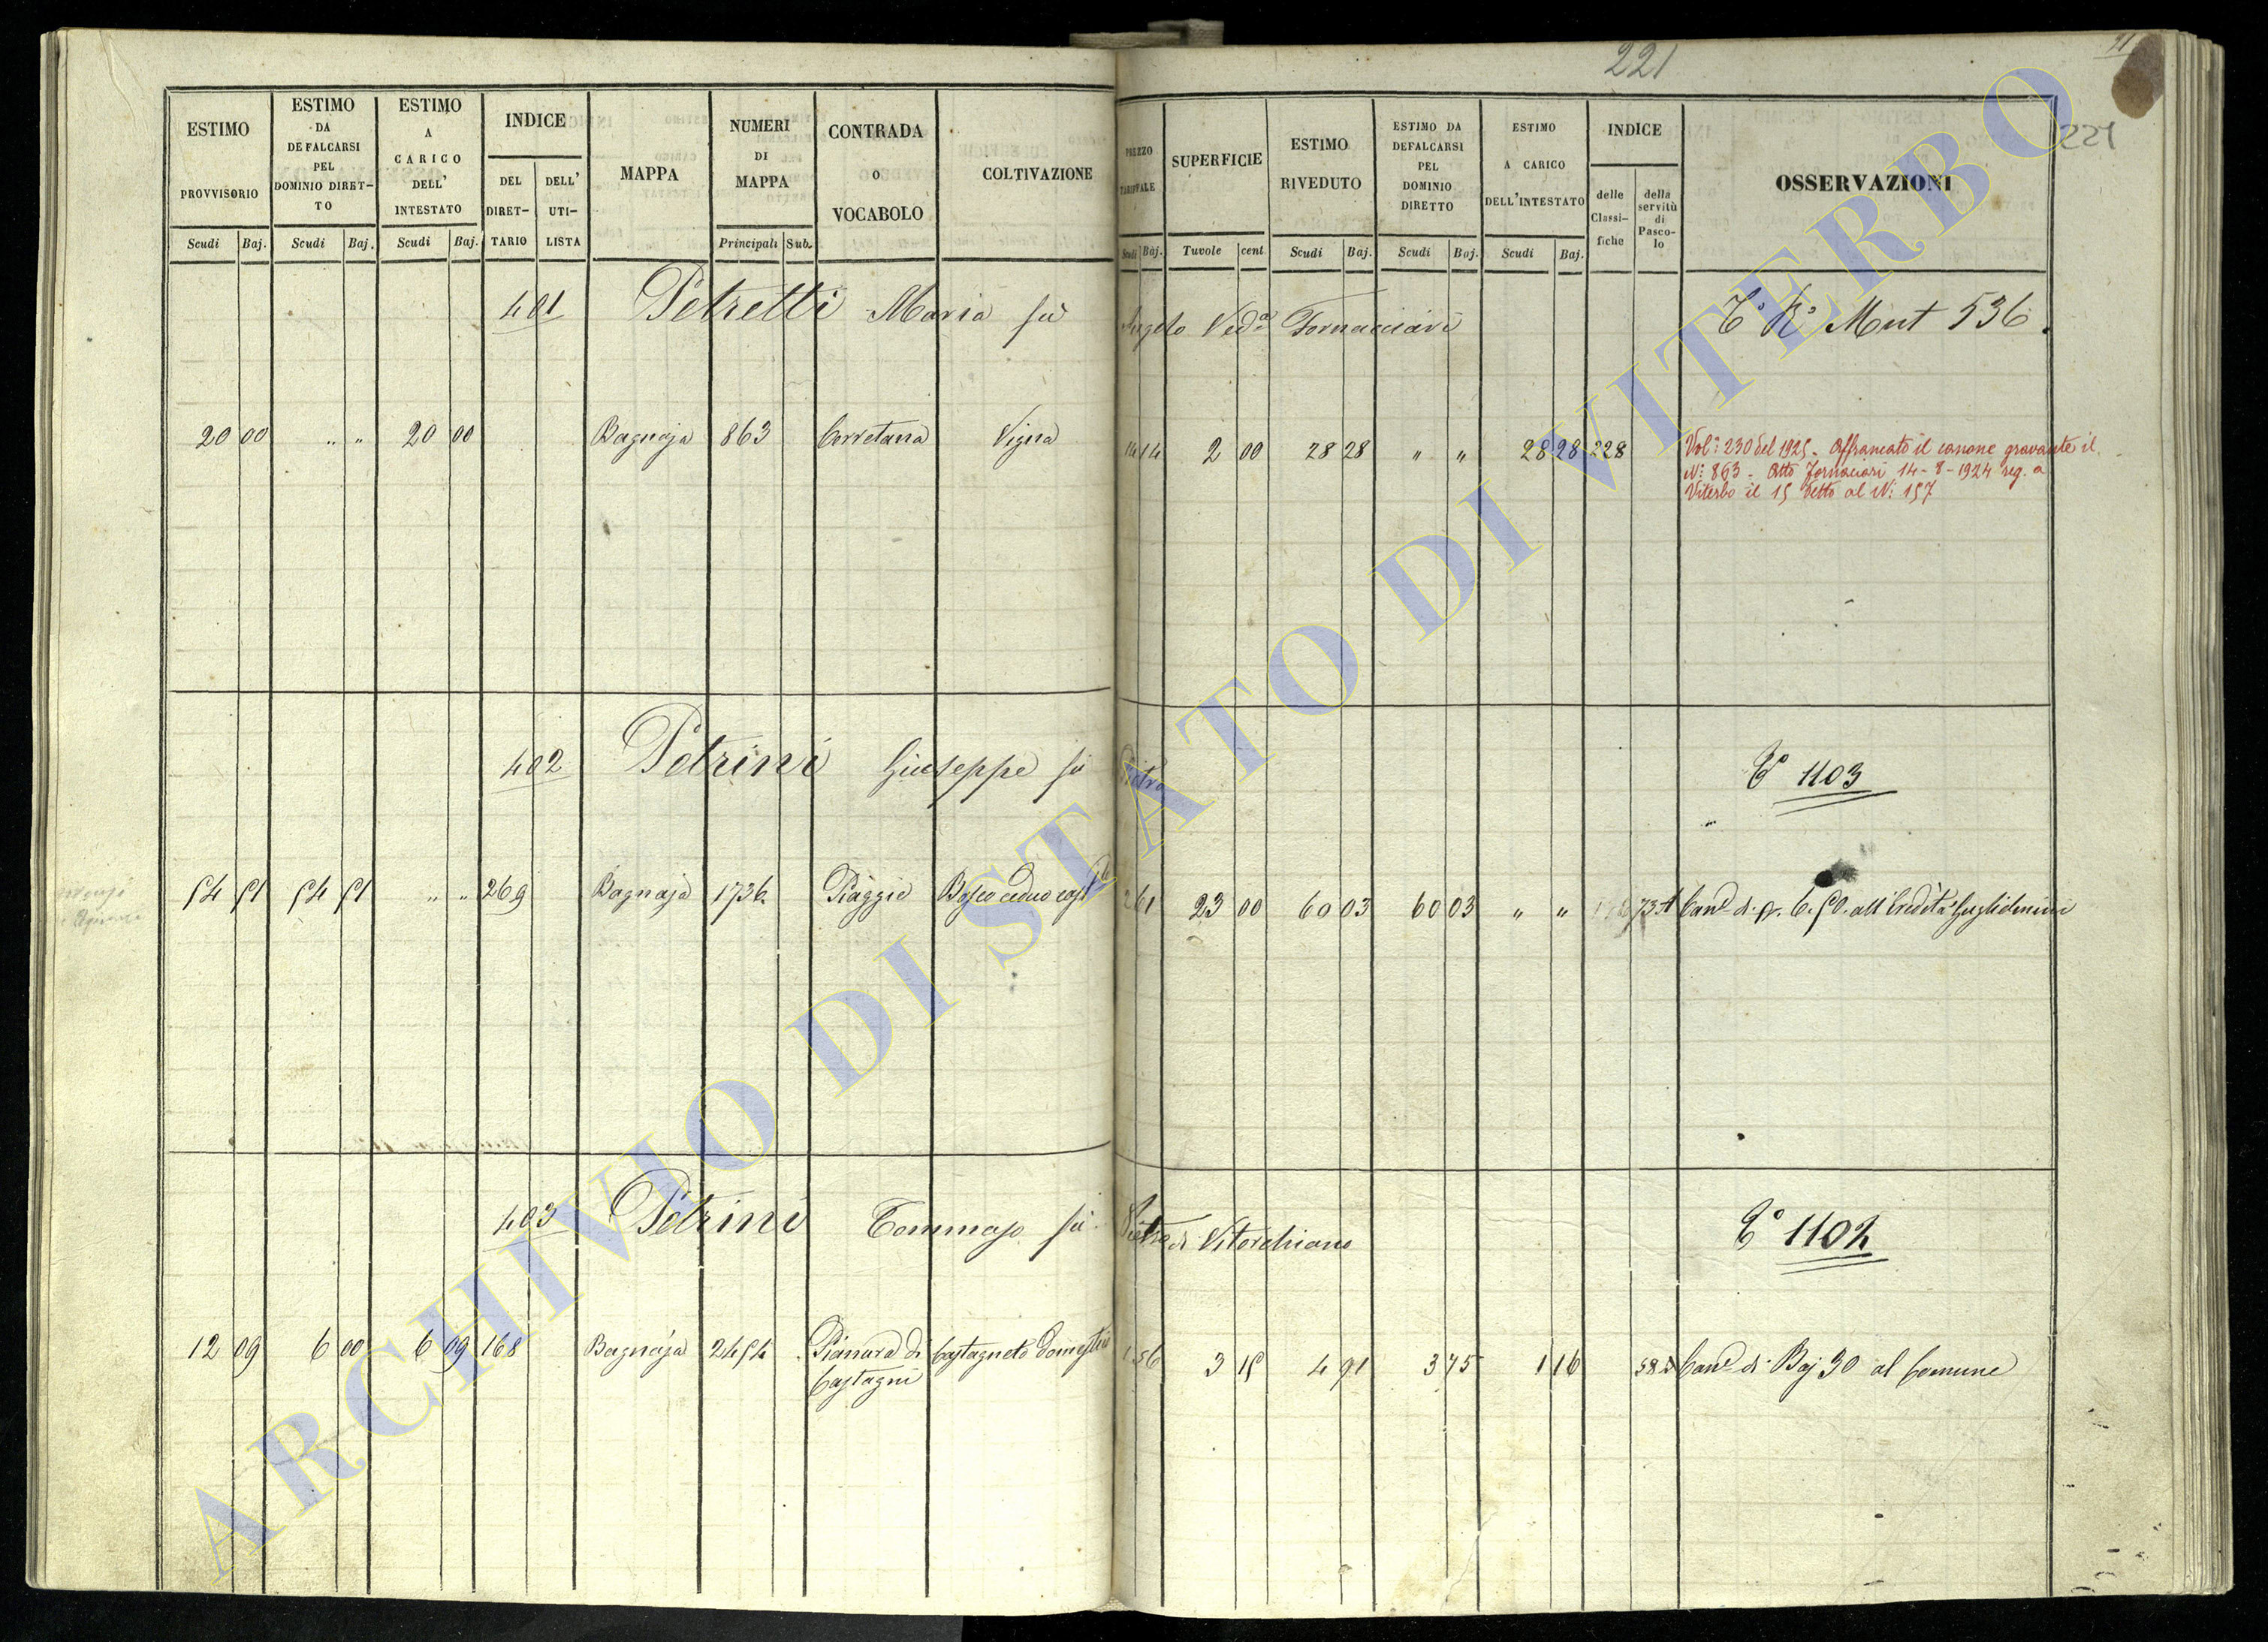 221
221
ESTIMO PROVVISORIO Scudi Baj.
ESTIMO DA DEFALCARSI PEL DOMINIO DIRETTO Scudi Baj.
ESTIMO A CARICO DELL' INTESTATO Scudi Baj.
INDICE DEL DIRETTARIO DELL' UTILISTA
MAPPA
NUMERI DI MAPPA Principali Sub.
CONTRADA O VOCABOLO
COLTIVAZIONE
PREZZO TARIFFALE Scudi Baj.
SUPERFICIE Tavole cent
ESTIMO RIVEDUTO Scudi Baj.
ESTIMO DA DEFALCARSI PEL DOMINIO DIRETTO Scudi Baj.
ESTIMO A CARICO DELL'INTESTATO Scudi Baj.
INDICE delle Classifiche della servitù di Pascolo
OSSERVAZIONI
401 Petretti Maria fu Angelo Ved.a Fornacciari
C.o R.o Mut 536.
20 00 " " 20 00 Bagnaja 863 Corretana Vigna 14 14 2 00 28 28 " " 28 28 228
Vol: 230 del 1925. Affrancato il canone gravante il
N: 863 - Atto Fornaciari 14-8-1924 reg. a
Viterbo il 15 detto al N: 157
402 Petrini Giuseppe fu Pietro
C.o 1103
54 51 54 51 " " 269 Bagnaja 1736 Piaggie Bosco ceduo cast. 2 61 23 00 60 03 60 03 " " 73 A Can.e di 6.50. all'Eredità Guglielmini
403 Petrini Tommaso fu Pietro di Vitorchiano
C.o 1102
12 09 6 00 6 09 168 Bagnaja 2454 Pianura di Castagneto Domestico 1 56 3 15 4 91 3 75 1 16 Can.e di Baj 30 al Comune
Castagni
ARCHIVIO DI STATO DI VITERBO